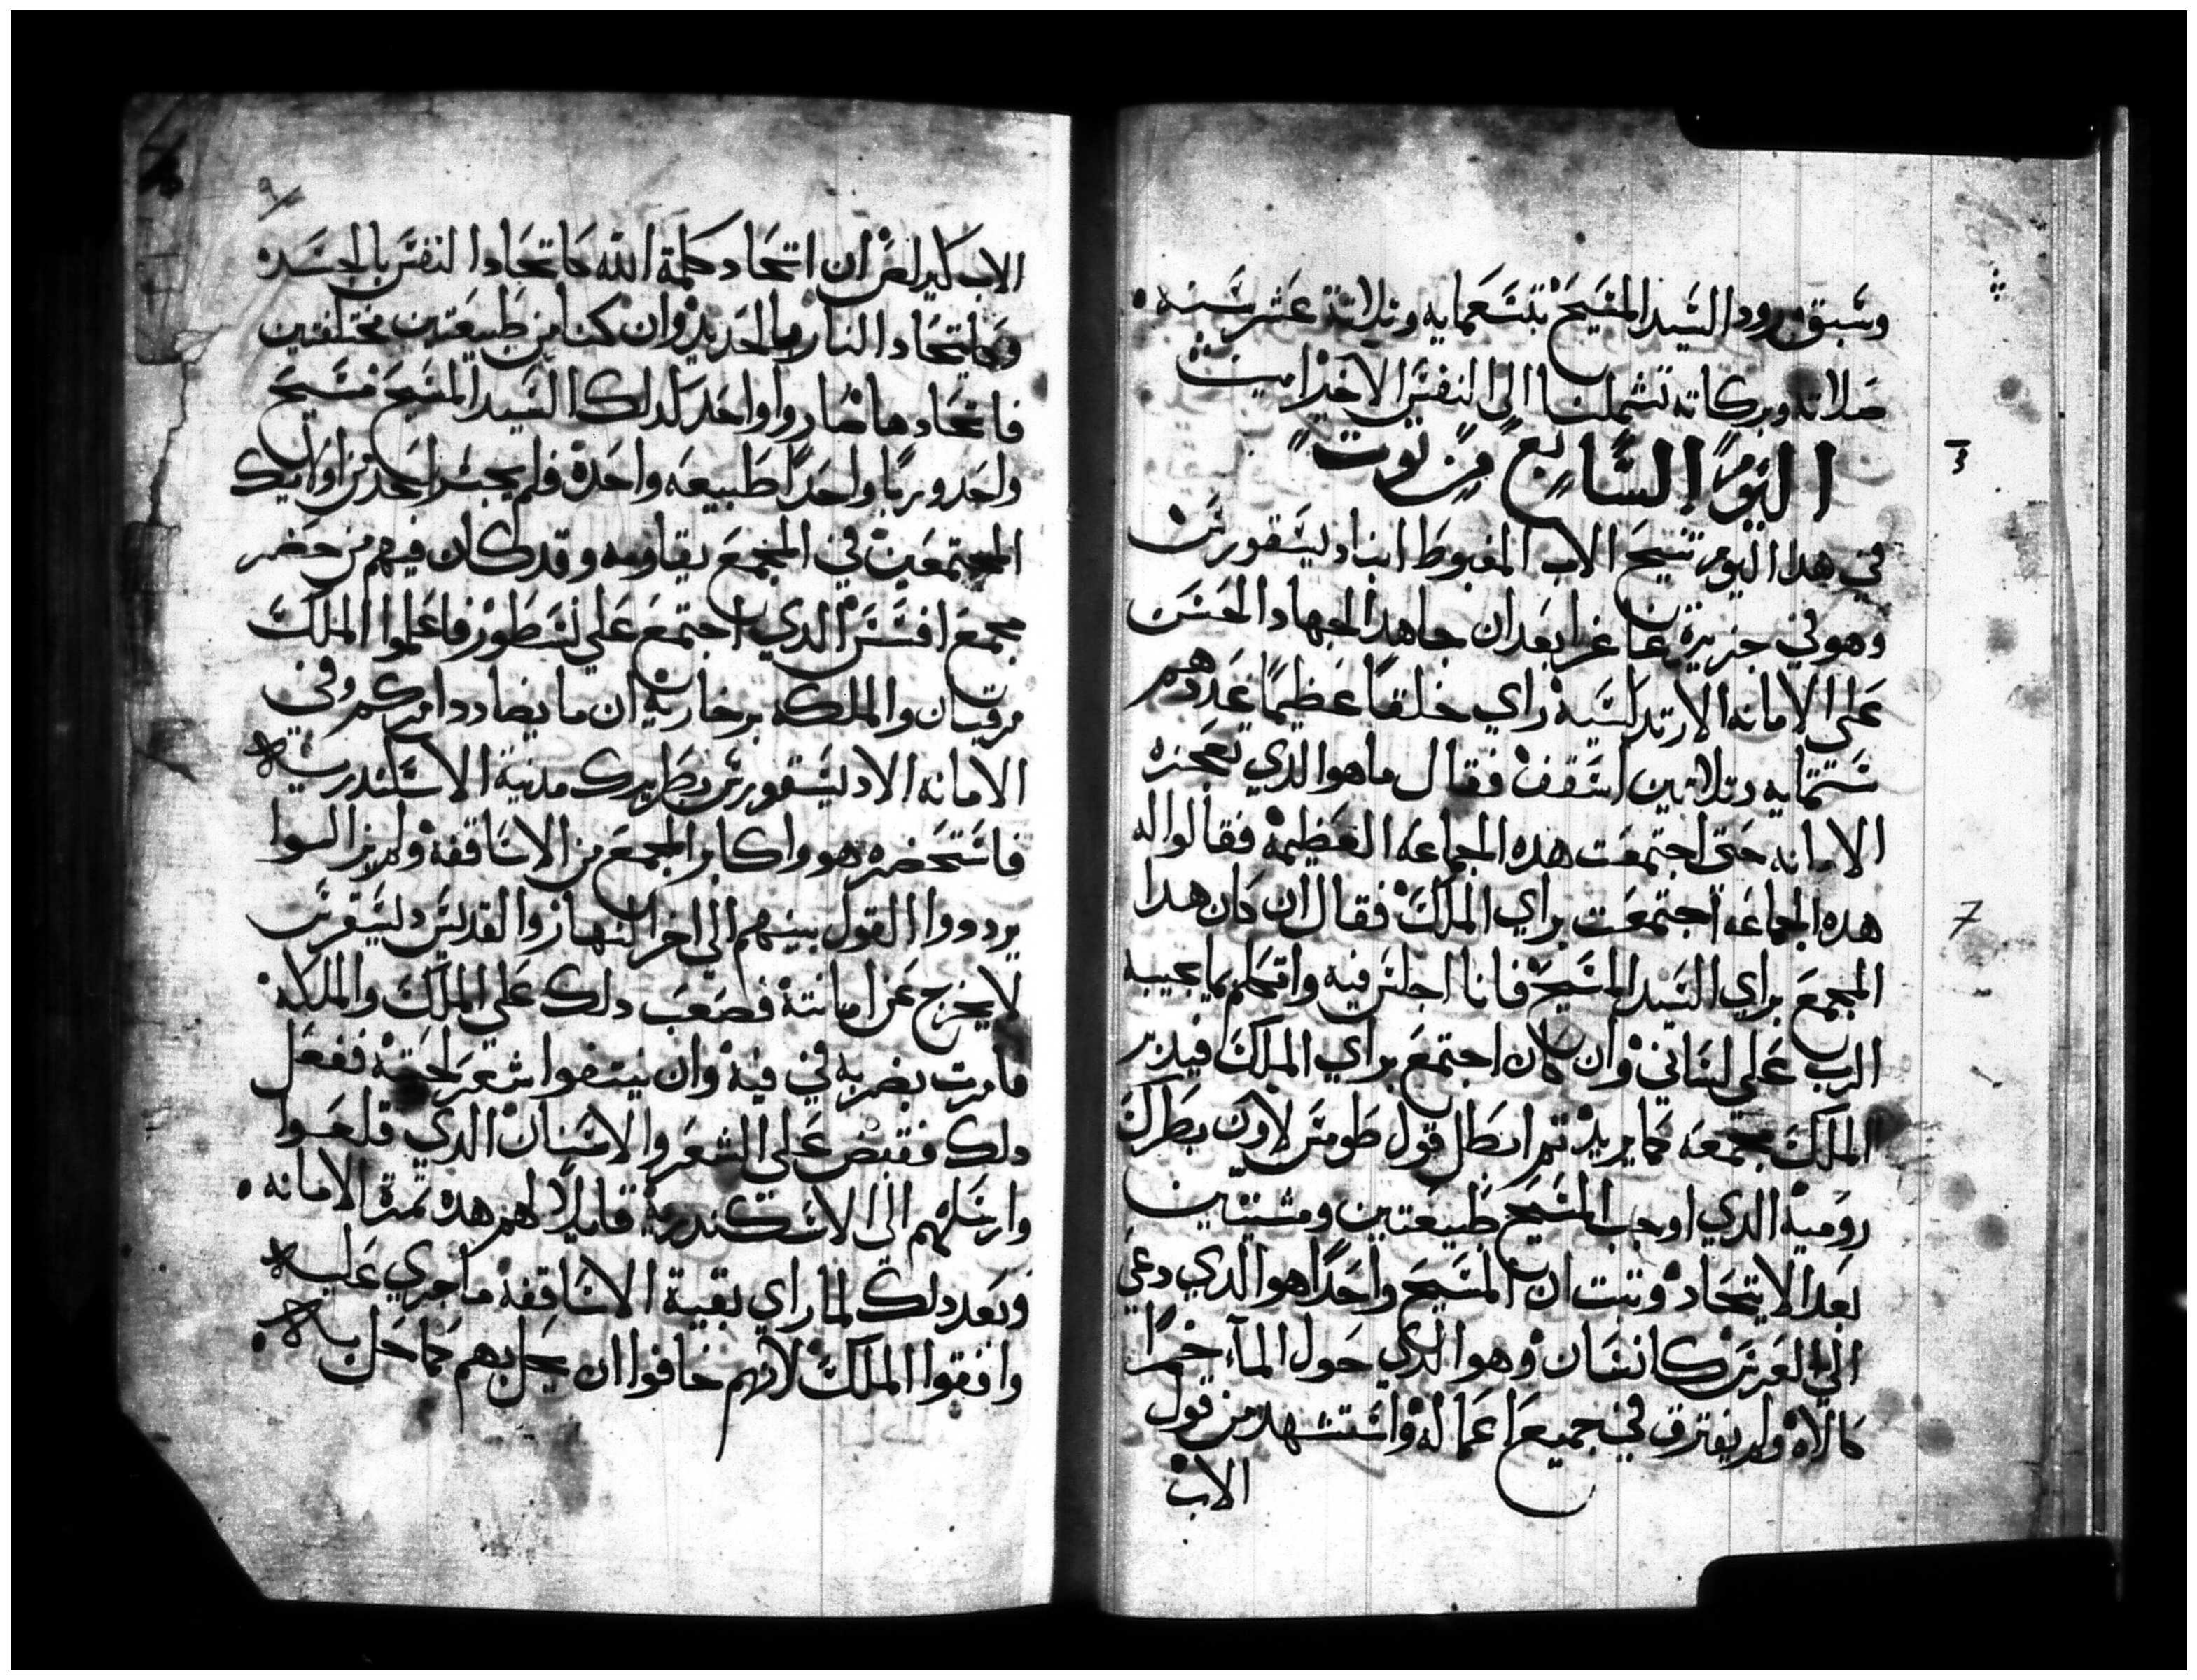 وسبق ورود السيد المسيح بتسعمايه وتلاتة عشر سنه.
صلاته وبركاته تشملنا الي النفس الاخير امين
اليوم السابع من توت
في هدا اليوم تنيح الاب المغبوط انبا ديسقورس
وهو في جزيرة غاغرا بعد ان جاهد الجهاد الحسن
علي الامانه الارتدلسيه راي خلقا عظيما عددهم
ستمايه وتلاتين اسقف فقال ما هو الدي تعجزه
الامانه حتي اجتمعت هده الجماعه العظيمة فقالوا له
هده الجماعه اجتمعت براي الملك فقال ان كان هدا
المجمع براي السيد المسيح فانا اجلس فيه واتكلم بما يجيبه
الرب علي لساني وان كان اجتمع براي الملك فيدبر
الملك مجمعه كما يريد تم ابطل قول طومس لاون بطرك
رومية الدي اوجب المسيح طبيعتين ومشيتين
بعد الاتحاد وتبت ان المسيح واحدا هو الدي دعي
الي العرس كانسان وهو الدي حول الماء خمرا
كالاه ولم يفترق في جميع اعماله واستشهد من قول
الاب
الاب كيرلص ان اتحاد كلمة الله كاتحاد النفس بالجسد
وكاتحاد النار بالحديد وان كنا من طبيعتين مختلفتين
فاتحادها صاروا واحد كدلك السيد المسيح مسيح
واحد وربا واحدا طبيعه واحدة فلم يجسر احد من اوليك
المجتمعين في المجمع يقاومه وقد كان فيهم من حضر
مجمع افسس الدي اجتمع علي نسطور فاعلموا الملك
مرقيان والملكه برخارية ان ما يضادد امركم وفي
الامانه الا ديسقورس بطريرك مدينة الاسكندريه
فاستحضره هو واكابر المجمع من الاساقفه ولم يزالوا
يرددوا القول بينهم الي اخر النهار والقديس ديسقرس
لا يخرج عن امانته فصعب دلك علي الملك والملكه.
فامرت بضربه في فيه وان ينتفوا شعر لحيته ففعل
دلك فقبض علي الشعر والاسنان الدي قلعوا
وارسلهم الي الاسكندرية قايلا لهم هده تمرة الامانه.
وبعد دلك لما راي بقية الاساقفه ما جري عليه
وافقوا الملك لانهم خافوا ان يحل بهم كما حل به.